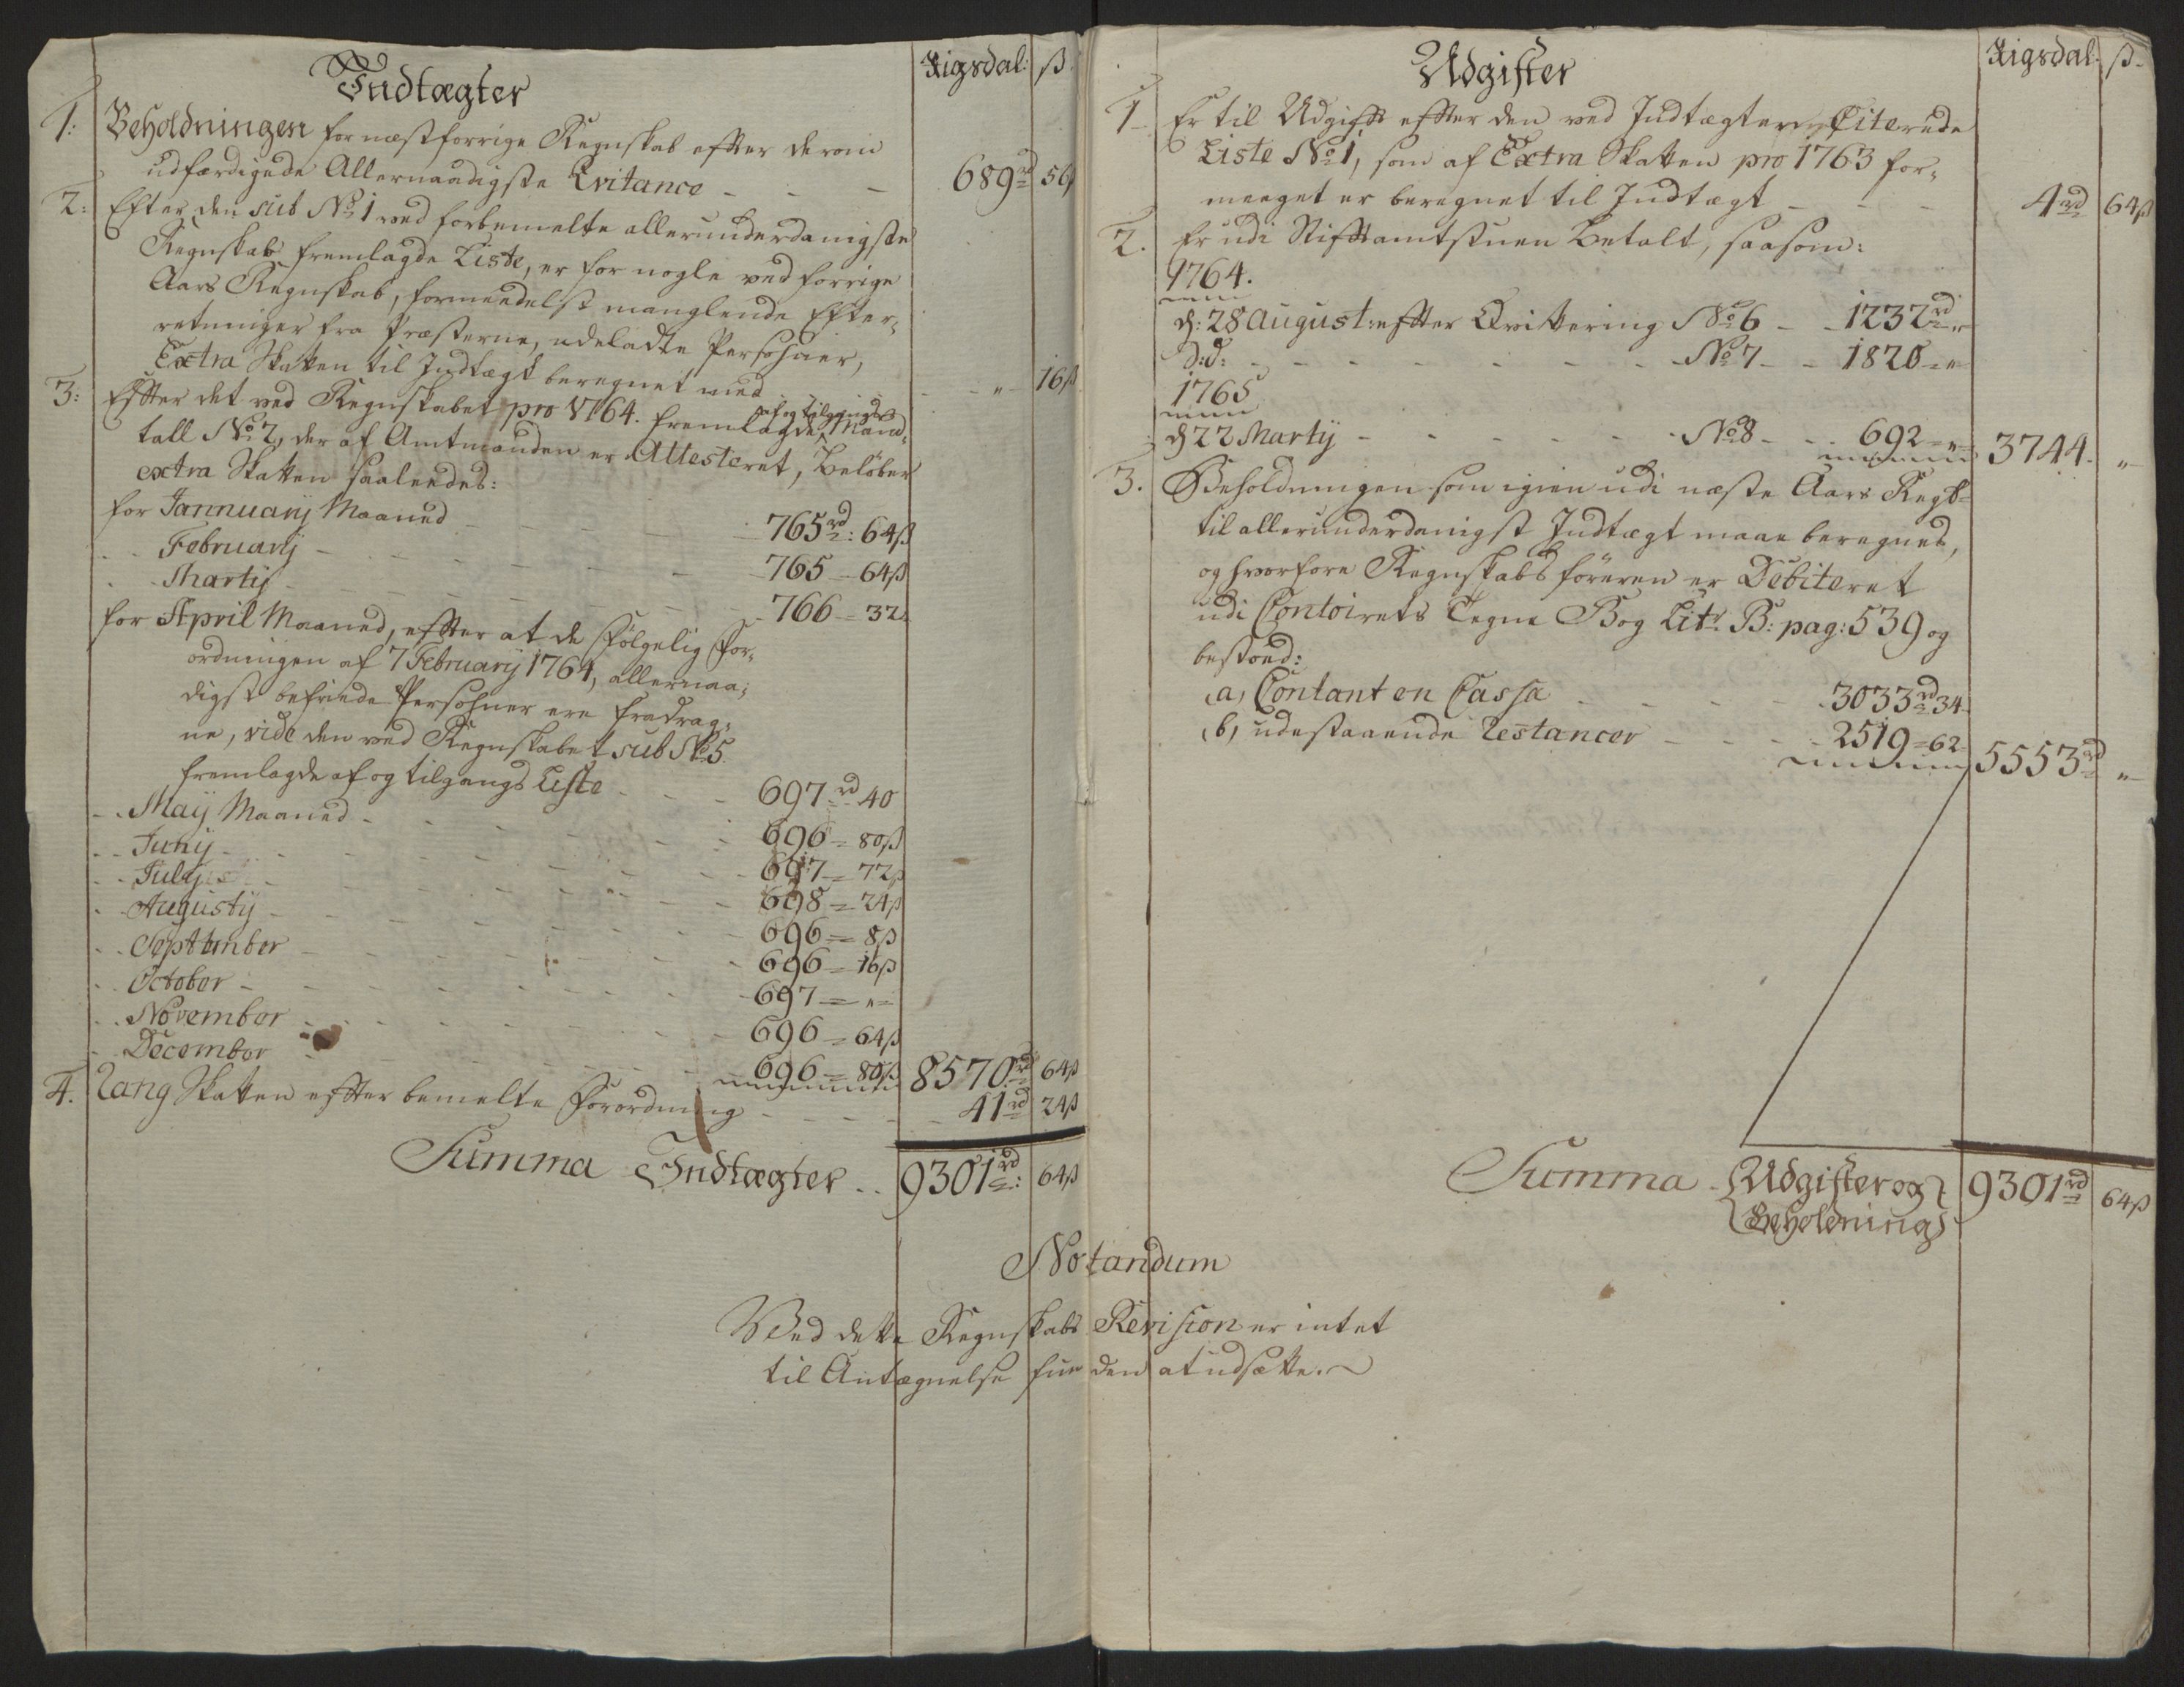 Indtægter
Rigsdal: ß
1: Beholdningen for næstforrige Regnskab effter derom
udfærdigede Allernaadigste Qvitance - - - 689 rd 56ß
2: Efter den sub No 1 ved forbemelte allerunderdanigste
Regnskab fremlagde Liste, er for nogle ved forrige
Aars Regnskab, formeedelst manglende Efter-
retninger fra Præsterne, udeladte Persohner,
Extra Skatten til Indtægt beregnet med - - " - 16ß
3: Effter det ved Regnskabet pro 1764. fremlagde af og tilgangs Mand-
tall No 2, der af Amtmanden er Attesteret, beløber
extra Skatten saaleedes:
for Jannuarij Maaned - - - 765 rd: 64ß
- - Februarij - - - 765 - 64ß
- - Martij - - - 766 = 32
for April Maaned, effter at de følgelig For-
ordningen af 7 Februarij 1764, allernaa-
digst befriede Persohner ere fradrag-
ne, vide den ved Regnskabet sub No 5.
fremlagde af og tilgangs Liste - - - 697 rd 40
- - Maij Maaned - - - 696 = 80ß
- - Junij - - - 697 = 72ß
- - Julij - - - 698 = 24ß
- - Augustij - - - 696 = 8ß
- - September - - - 696 = 16ß
- - October - - - 697 = " =
- - November - - - 696 = 64ß
- - December - - - 696 = 80ß 8570 rd 64ß
4. Rang Skatten effter bemelte Forordning - - - 41 rd 24ß
Summa Indtægter - - 9301 rd: 64ß
Udgifter
Rigsdal: ß
1 Er til Udgift effter den ved Indtægten Citerede
Liste No 1, som af Extra Skatten pro 1763 for-
meeget er beregnet til Indtægt - - - 4 rd 64ß
2. Er udi Stifftamtstuen betalt, saasom:
1764.
d: 28 August: effter Qvittering No 6 - - 1232 rd "
d: d: - - - No 7 - - 1820 = "
1765
d 22 Martij - - - No 8 - - 692 = " 3744. "
3. Beholdningen som igien udi næste Aars Regsb:
til allerunderdanigst Indtægt maae beregnes,
og hvorfore Regnskabsføreren er Debiteret
udi Contoirets Tegne Bog Litr B: pag: 539 og
bestoed:
a, Contant en Cassa - - - 3033 rd 34
b, udestaaende Restancer - - - 2519 = 62 5553 rd "
Summa - Udgifter og
Beholdning 9301 rd 64ß
Notandum
Ved dette Regnskabs Revision er intet
til Antegnelse funden at udsætte.